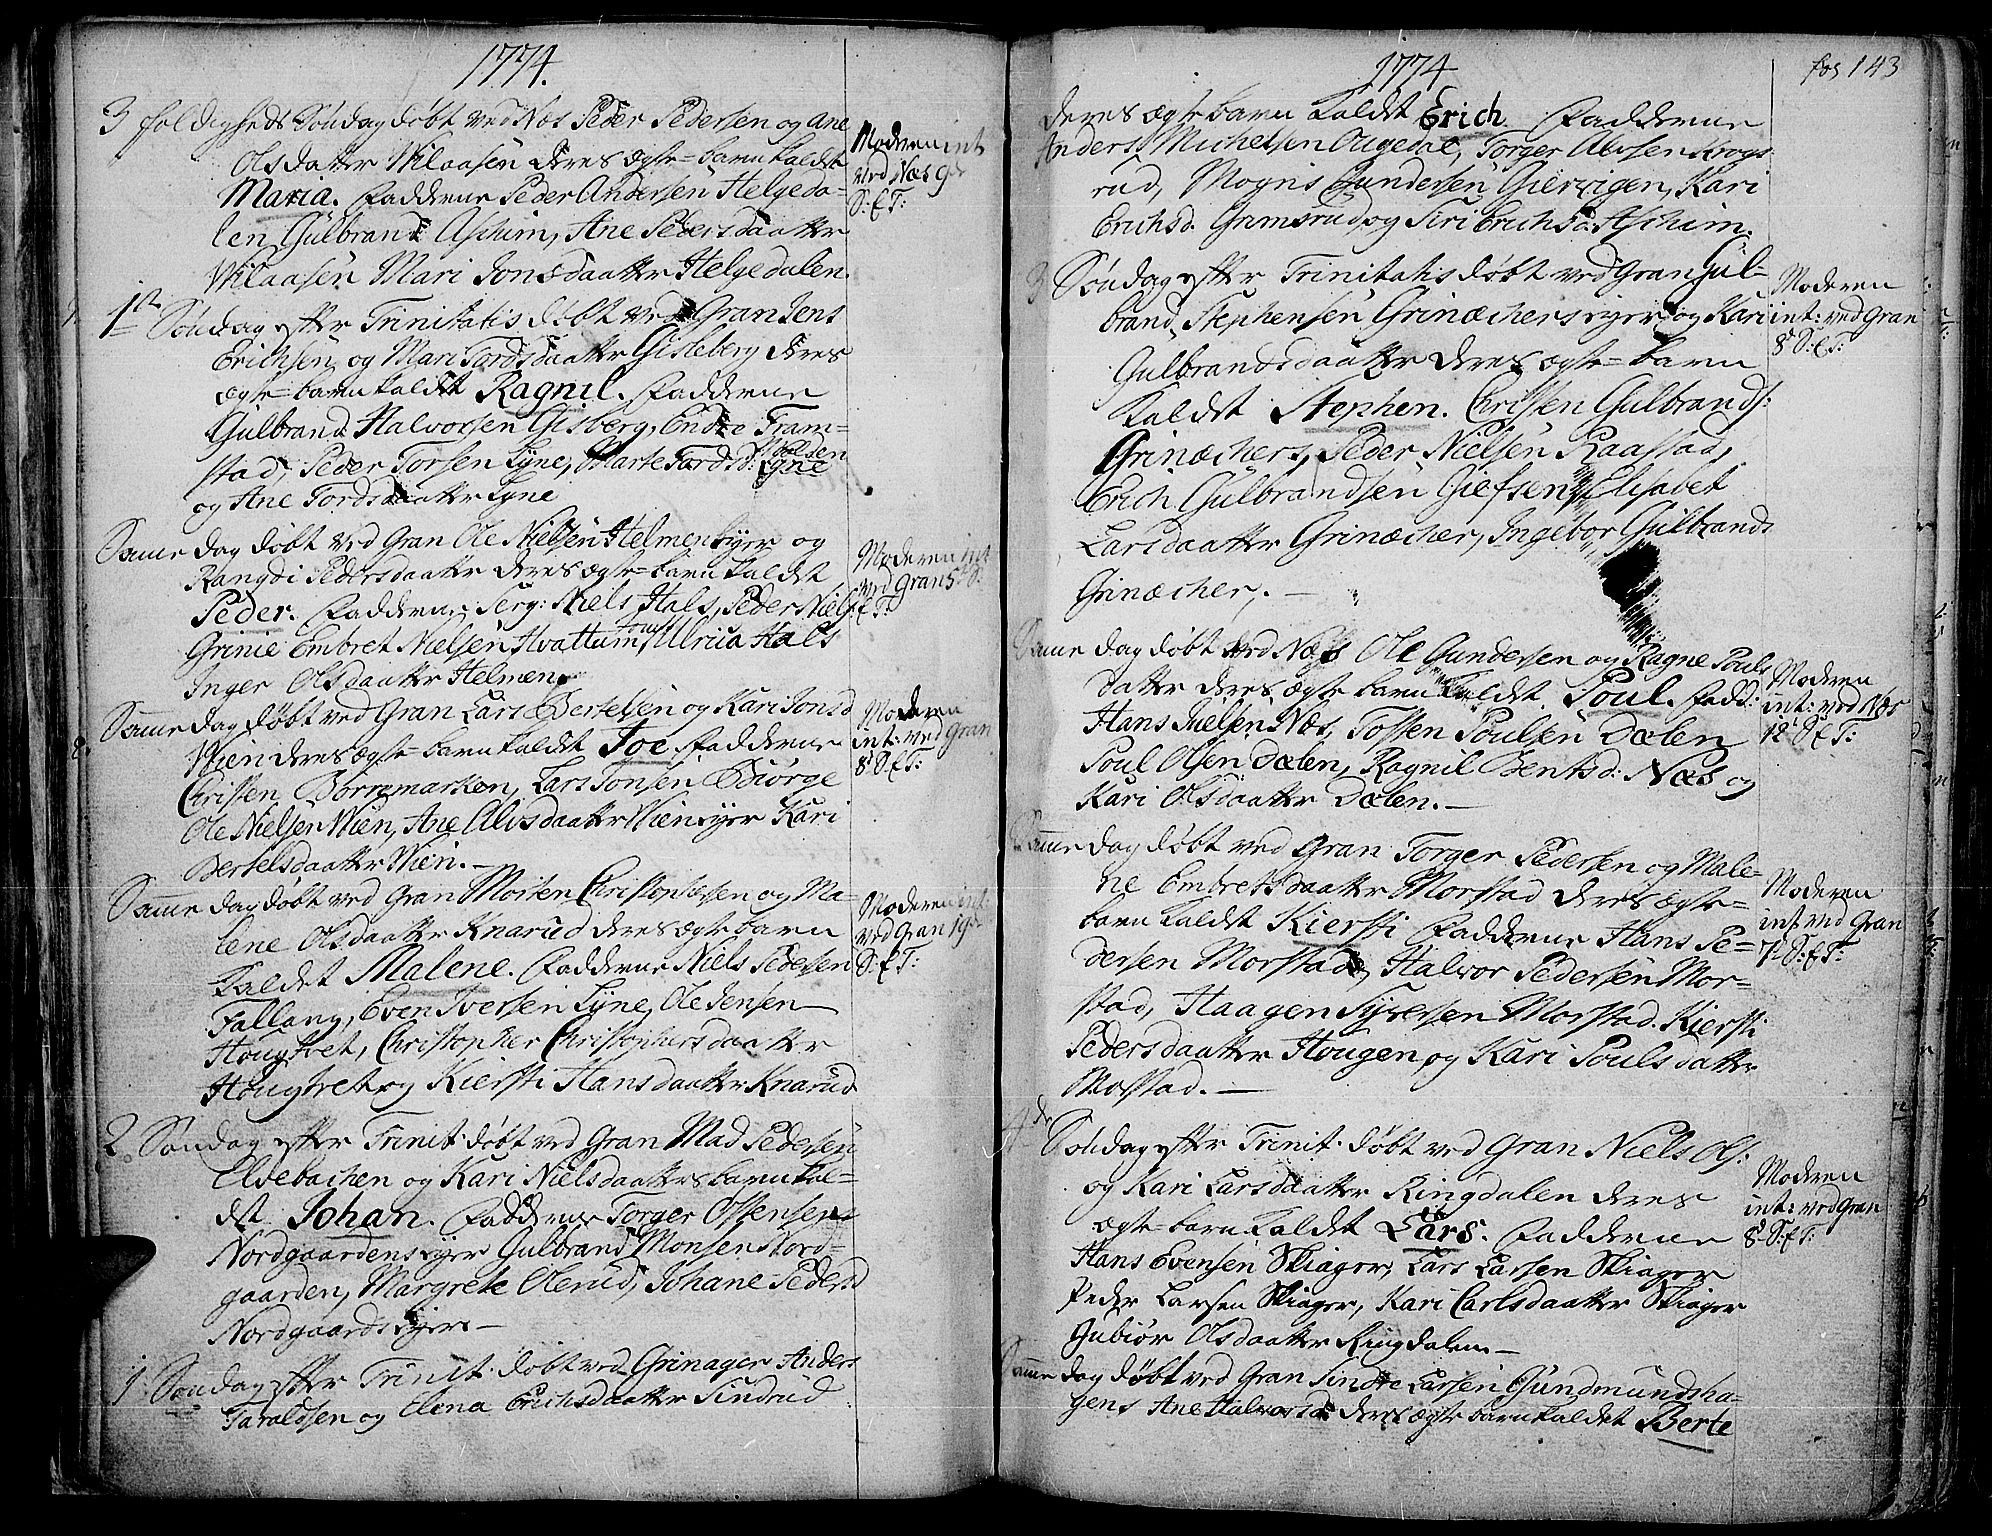 1774.
3 foldigheds Søndag døbt ved Næs Peder Pedersen og Ane
Olsdatter Wilaasen deres ægte-barn kaldt
Maria. Fadderne Peder Andersen Helgeda-
len Gulbrand Aschim, Ane Pedersdaatter
Wilaasen Mari Jonsdaatter Helgedalen.
Moderen int
ved Næs 9de
S: E T:
1ste Søndag efter Trinitatis døbt ved Gran Jens
Erichsen og Mari Tordsdaatter Gisleberg deres
ægte-barn kaldet Ragnil. Fadderne
Gulbrand Halvorsen Gisberg, Endre Fram-
stad, Peder Torsen Lyne, Marte Tordsd: Lyne
og Ane Tordsdaatter Lyne
Same dag døbt ved Gran Ole Nielsen Helmen Eyer og
Rangdi Pedersdaatter deres ægte-barn kaldet
Peder. Fadderne Serg: Niels Hals, Peder Niels:
Grinie Embret Nielsen Hvattum, Ulrica Hals
Inger Olsdaatter Helmen.
Moderen int
ved Gran 5te S:
E T:
Same dag døbt ved Gran Lars Bertelsen og Kari Jonsd
Wien deres ægte-barn kaldet Joe. Fadderne
Christen Børremarken, Lars Jonsen Biørge
Ole Nielsen Wien, Ane Alvsdaatter Wien eyer Kari
Bertelsdaatter Wien.
Moderen
int: ved Gran
8de S: E T:
Same dag døbt ved Gran Morten Christophersen og Ma-
lene Olsdaatter Knarud deres ægte barn
kaldet Malene. Fadderne Niels Pedersen
Fallang, Even Iversen Lyne, Ole Jensen
Hougtvet, Christopher Christophersdaatter
Hougtvet og Kiersti Hansdaatter Knarud
Moderen int:
ved Gran 19de
S: E T:
2. Søndag efter Trinit. døbt ved Gran Mad Pedersen
Elvebachen og Kari Nielsdaatters barn kal-
det Johan. Fadderne Torger Ostensen
Nordgaardens eyer Gulbrand Monsen Nord-
gaarden, Margrete Olerud, Johane Pedersd
Nordgaards Eyer
1. Søndag efter Trinit. døbt ved Grinager Anders
Taraldsen og Elena Erichsdaatter Tindrud
1774
fol 143
deres ægte barn kaldt Erich. Fadderne
Anders Michelsen Augedal, Torger Alvsen Krogs-
rud, Mogns Gundersen Giervigen, Kari
Erichsd. Grimsrud og Siri Erichsd. Aschim.
3 Søndag efter Trinitatis døbt ved Gran Gul-
brand Stephensen Grinæchers eyer og Kari
Gulbrandsdaatter deres ægte-barn
kaldet Stephen. Christen Gulbrands:
Grinæchers, Peder Nielsen Raastad,
Erich Gulbrandsen Giefsen, Elisabet
Larsdaatter Grinæcher, Ingebor Gulbrands
Grinæcher.
Moderen
int: ved Gran
8de S: E T:
Same dag døbt ved Næs Ole Gundersen og Ragne Pouls
datter deres ægte barn kaldet Poul. Fadd:
Hans Juelsen Næs, Tosten Poulsen Dælen
Poul Olsen Dælen, Ragnil Bentsd: Næs og
Kari Olsdaatter Dælen.
Moderen
int: ved Næs
12te S: E T:
Same dag døbt ved Gran Torger Pedersen og Male-
ne Embretsdaatter Morstad deres ægte-
barn kaldet Kiersti Fadderne Hans Pe-
dersen Morstad, Halvor Pedersen Mor-
stad, Haagen Syversen Morstad. Kiersti
Pedersdaatter Hougen, og Kari Poulsdatter
Morstad.
Moderen
int: ved Gran
7de S: E T:
4de Søndag efter Trinit. døbt ved Gran Niels Ols:
og Kari Larsdaatter Ringdalen deres
ægte-barn kaldet Lars. Fadderne
Hans Evensen Skiager, Lars Larsen Skiager
Peder Larsen Skiager, Kari Carlsdaatter Skiager
Gubiør Olsdaatter Ringdalen
Moderen
int: ved Gran
8de S: E T:
Same dag døbt ved Gran Sindre Larsen Gundmundsha-
gens Ane Halvorsd deres ægte barn kaldet Berte